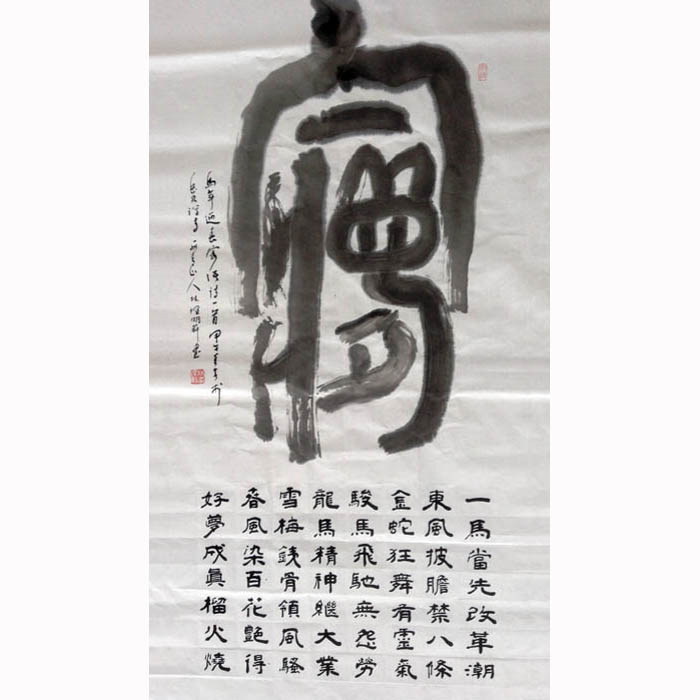 夢
一馬當先改革潮
東風披膽禁八條
金蛇狂舞有靈氣
駿馬飛馳無怨勞
龍馬精神繼大業
雪梅銕骨領風騷
春風染百花艷得
好夢成眞榴火燒
馬年迎春寄语诗一首甲午